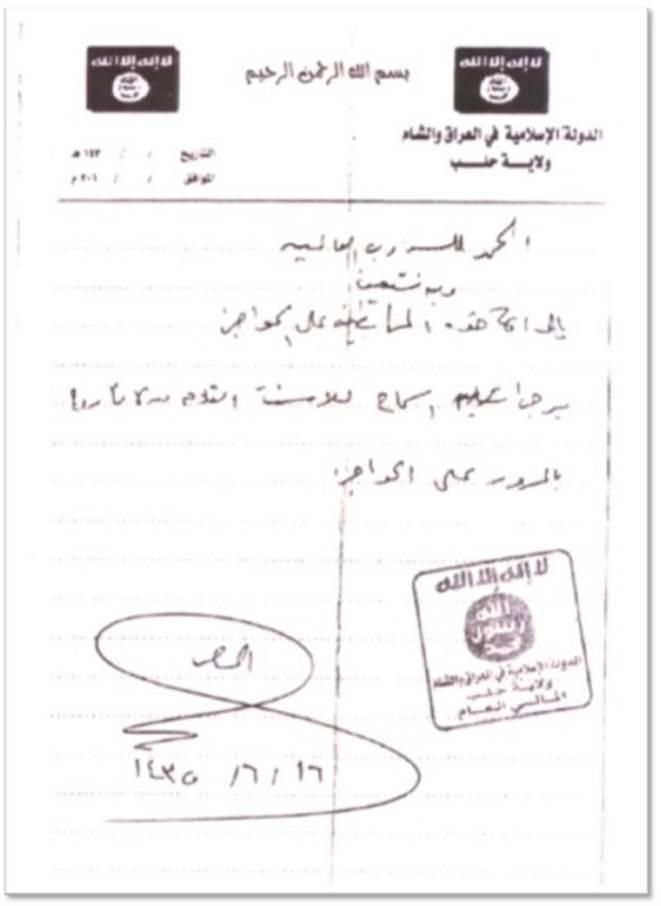 لا إله إلا الله
الله
رسول
محمد
بسم الله الرحمن الرحيم
لا إله إلا الله
الله
رسول
محمد
الدولة الإسلامية في العراق والشام
ولايــة حلــب
التاريخ / / ١٤٣ هـ
الموافق / / ٢٠١ م
الحمد لله رب العالمين
وبه نستعين
على الحواجز
السماح للاسمنت القادم من
بالمرور على الحواجز
لا إله إلا الله
الله
رسول
محمد
الدولة الإسلامية في العراق والشام
ولايــة حلــب
المالي العام
١٦ / ٦ / ١٤٣٥